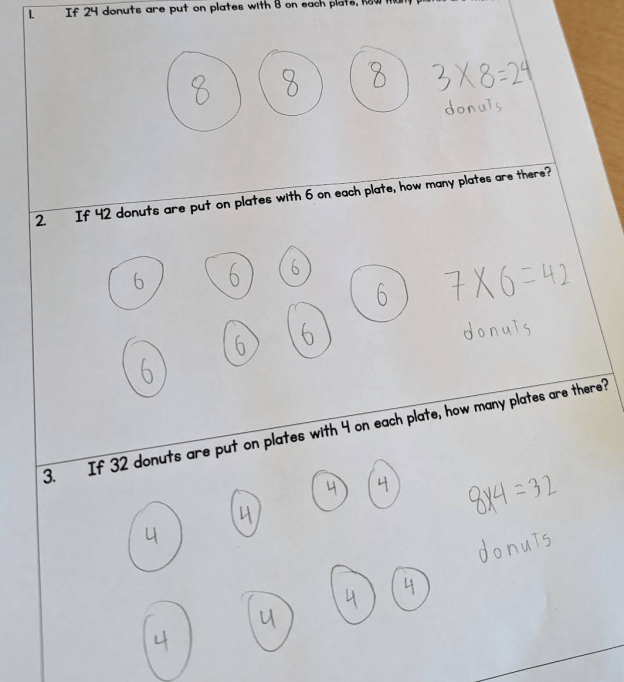 1. If 24 donuts are put on plates with 8 on each plate, how many
8 8 8 3×8=24
donuts
2. If 42 donuts are put on plates with 6 on each plate, how many plates are there?
6 6 6 6 7×6=42
6 6 6 donuts
3. If 32 donuts are put on plates with 4 on each plate, how many plates are there?
4 4 4 4 8×4=32
donuts
4 4 4 4